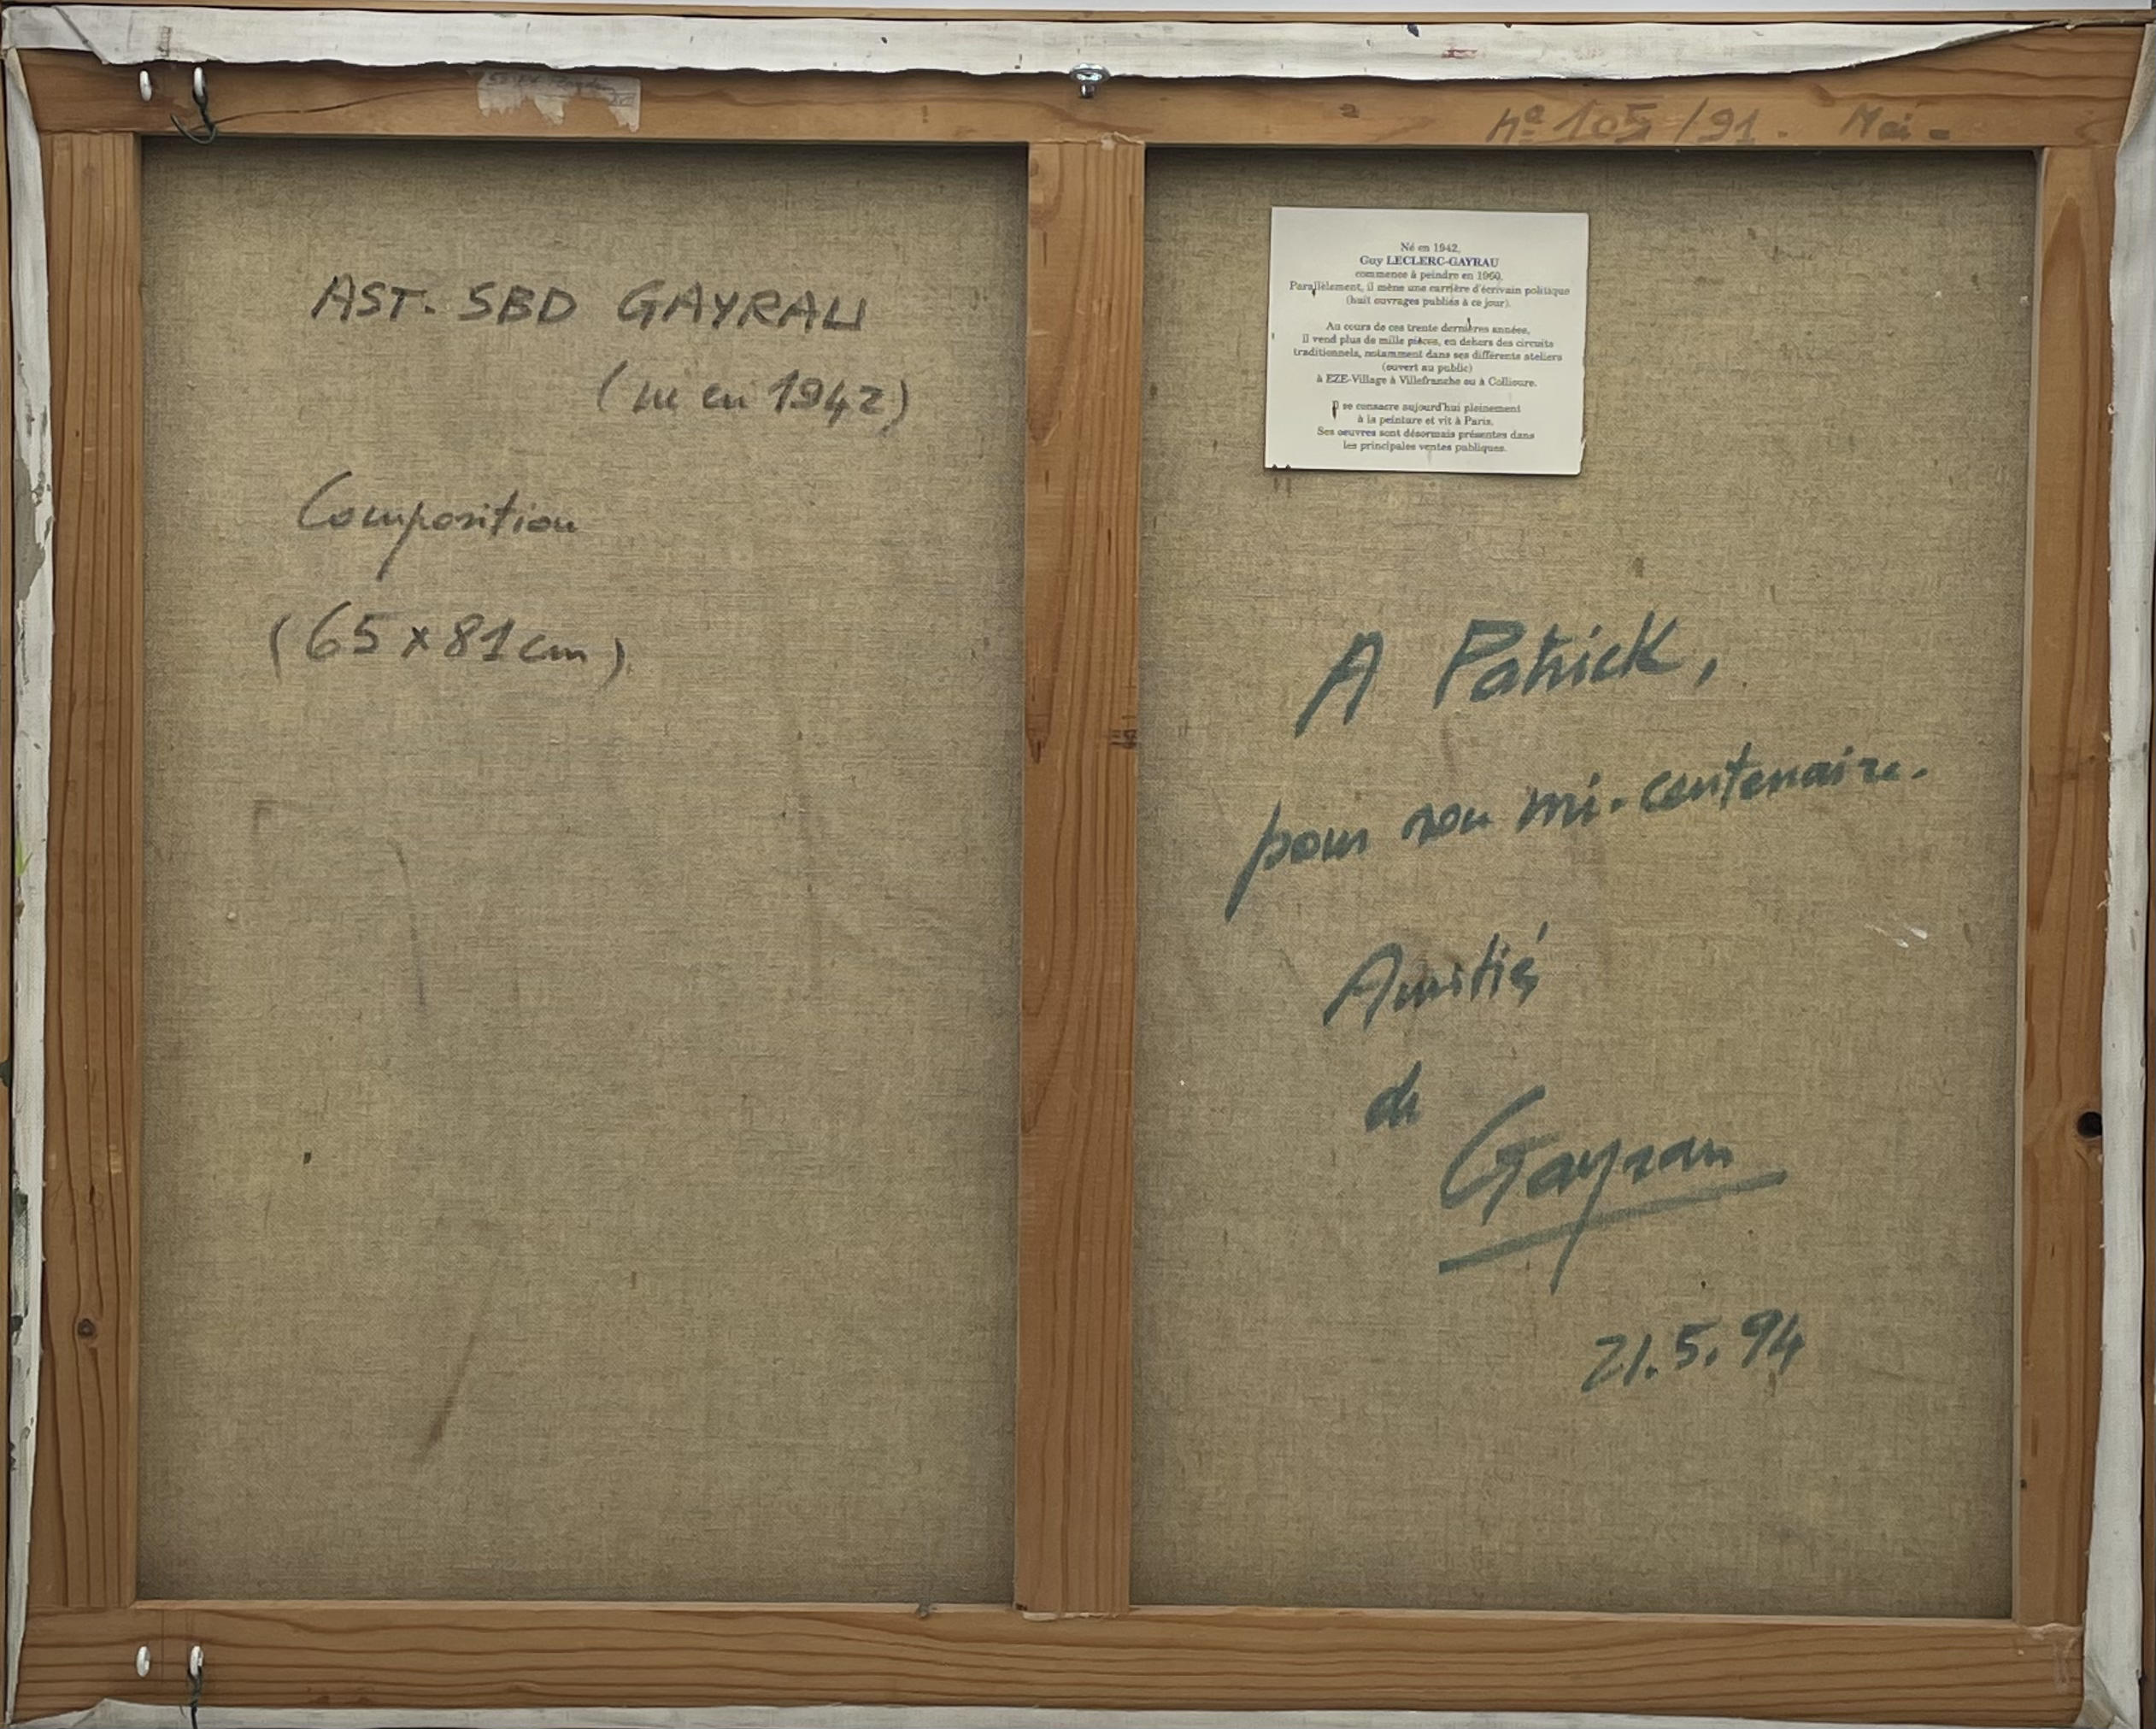 nº 105/91. Mai -
AST. SBD GAYRAU
(né en 1942)
Composition
(65 x 81 cm)
Né en 1942,
Guy LECLERC-GAYRAU
commence à peindre en 1960.
Parallèlement, il mène une carrière d'écrivain politique
(huit ouvrages publiés à ce jour).
Au cours de ces trente dernières années,
il vend plus de mille pièces, en dehors des circuits
traditionnels, notamment dans ses différents ateliers
(ouvert au public)
à EZE-Village à Villefranche ou à Collioure.
Il se consacre aujourd'hui pleinement
à la peinture et vit à Paris.
Ses oeuvres sont désormais présentes dans
les principales ventes publiques.
A Patrick,
pour son mi-centenaire.
Amitiés
de
Gayrau
21.5.94